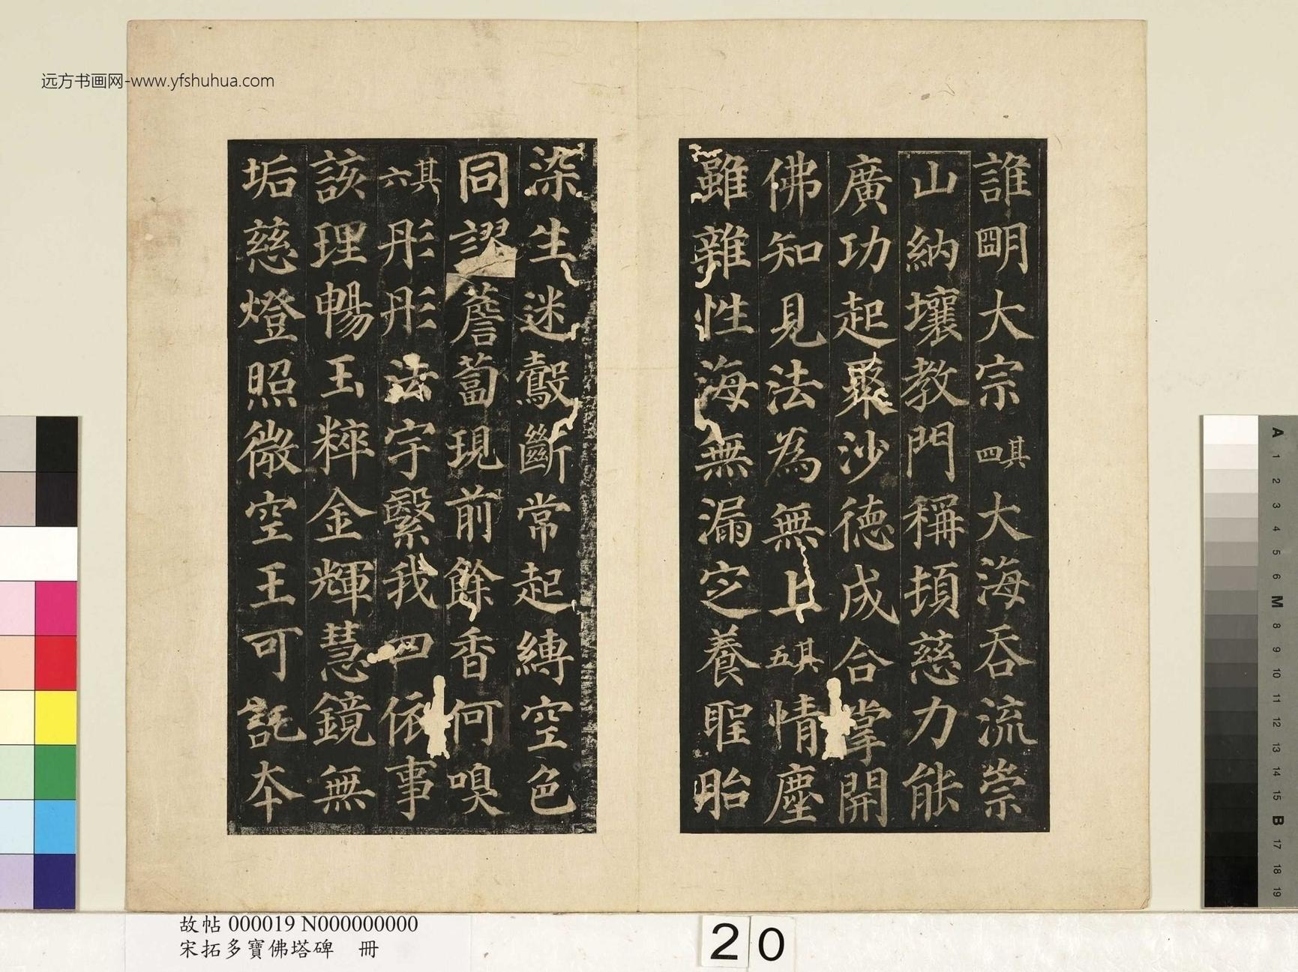 远方书画网-www.yfshuhua.com
誰明大宗其四大海吞流崇
山納壤教門稱頓慈力能
廣功起聚沙德成合掌開
佛知見法為無上其五情塵
雖雜性海無漏定養聖胎
染生迷鷇斷常起縛空色
同謬薝蔔現前餘香何嗅
其六彤彤法宇繄我四依事
該理暢玉粹金輝慧鏡無
垢慈燈照微空王可託本
故帖 000019 N000000000
宋拓多寶佛塔碑 冊
20
A 1 2 3 4 5 6 M 8 9 10 11 12 13 14 15 B 17 18 19